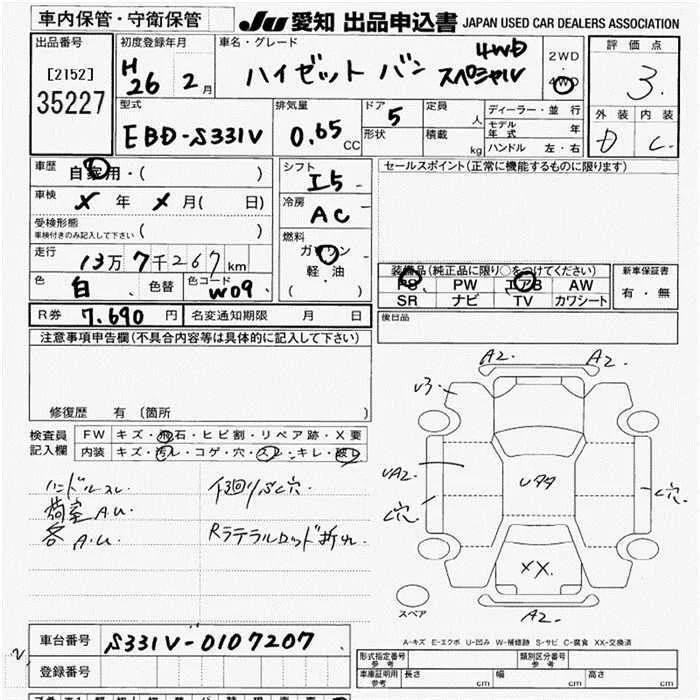 車内保管・守衛保管
JU 愛知 出品申込書 JAPAN USED CAR DEALERS ASSOCIATION
出品番号
[2152]
35227
初度登録年月
H 26 2月
車名・グレード
ハイゼット バン 4WD スペシャル
2WD
・
4WD
評価点
3.
外装 内装
D C
型式
EBD-S331V
排気量
0.65 CC
ドア 5
形状
定員 人
積載 kg
ディーラー・並行
モデル年式 年
ハンドル 左・右
車歴 自家用・( )
車検 X 年 X 月( 日)
受検形態
車検付きのみ記入して下さい ( )
走行 13万7千267km
色 白 色替 色コード W09
シフト I5
冷房 AC
燃料
ガソリン
軽・油
( )
セールスポイント(正常に機能するものに限ります)
装備品(純正品に限り○をつけてください)
PS PW エアB AW
SR ナビ TV カワシート
新車保証書
有・無
R券 7,690 円 名変通知期限 月 日
後日品
注意事項申告欄(不具合内容等は具体的に記入して下さい)
修復歴 有(箇所 )
検査員記入欄
FW キズ・飛石・ヒビ割・リペア跡・X要
内装 キズ・汚レ・コゲ・穴・スレ・キレ・破レ
ハンドルスレ
荷室A.U
各A.U
下廻りふく穴
Rラテラルロッド折れ
A2. A2.
U3
UA2
C穴
Uタタ
C穴
XX.
A2.
スペア
A-キズ E-エクボ U-凹み W-補修跡 S-サビ C-腐食 XX-交換済
車台番号 S331V-0107207
登録番号
形式指定番号 参考
類別区分番号 参考
車庫証明用 参考 長さ cm 幅 cm 高さ cm